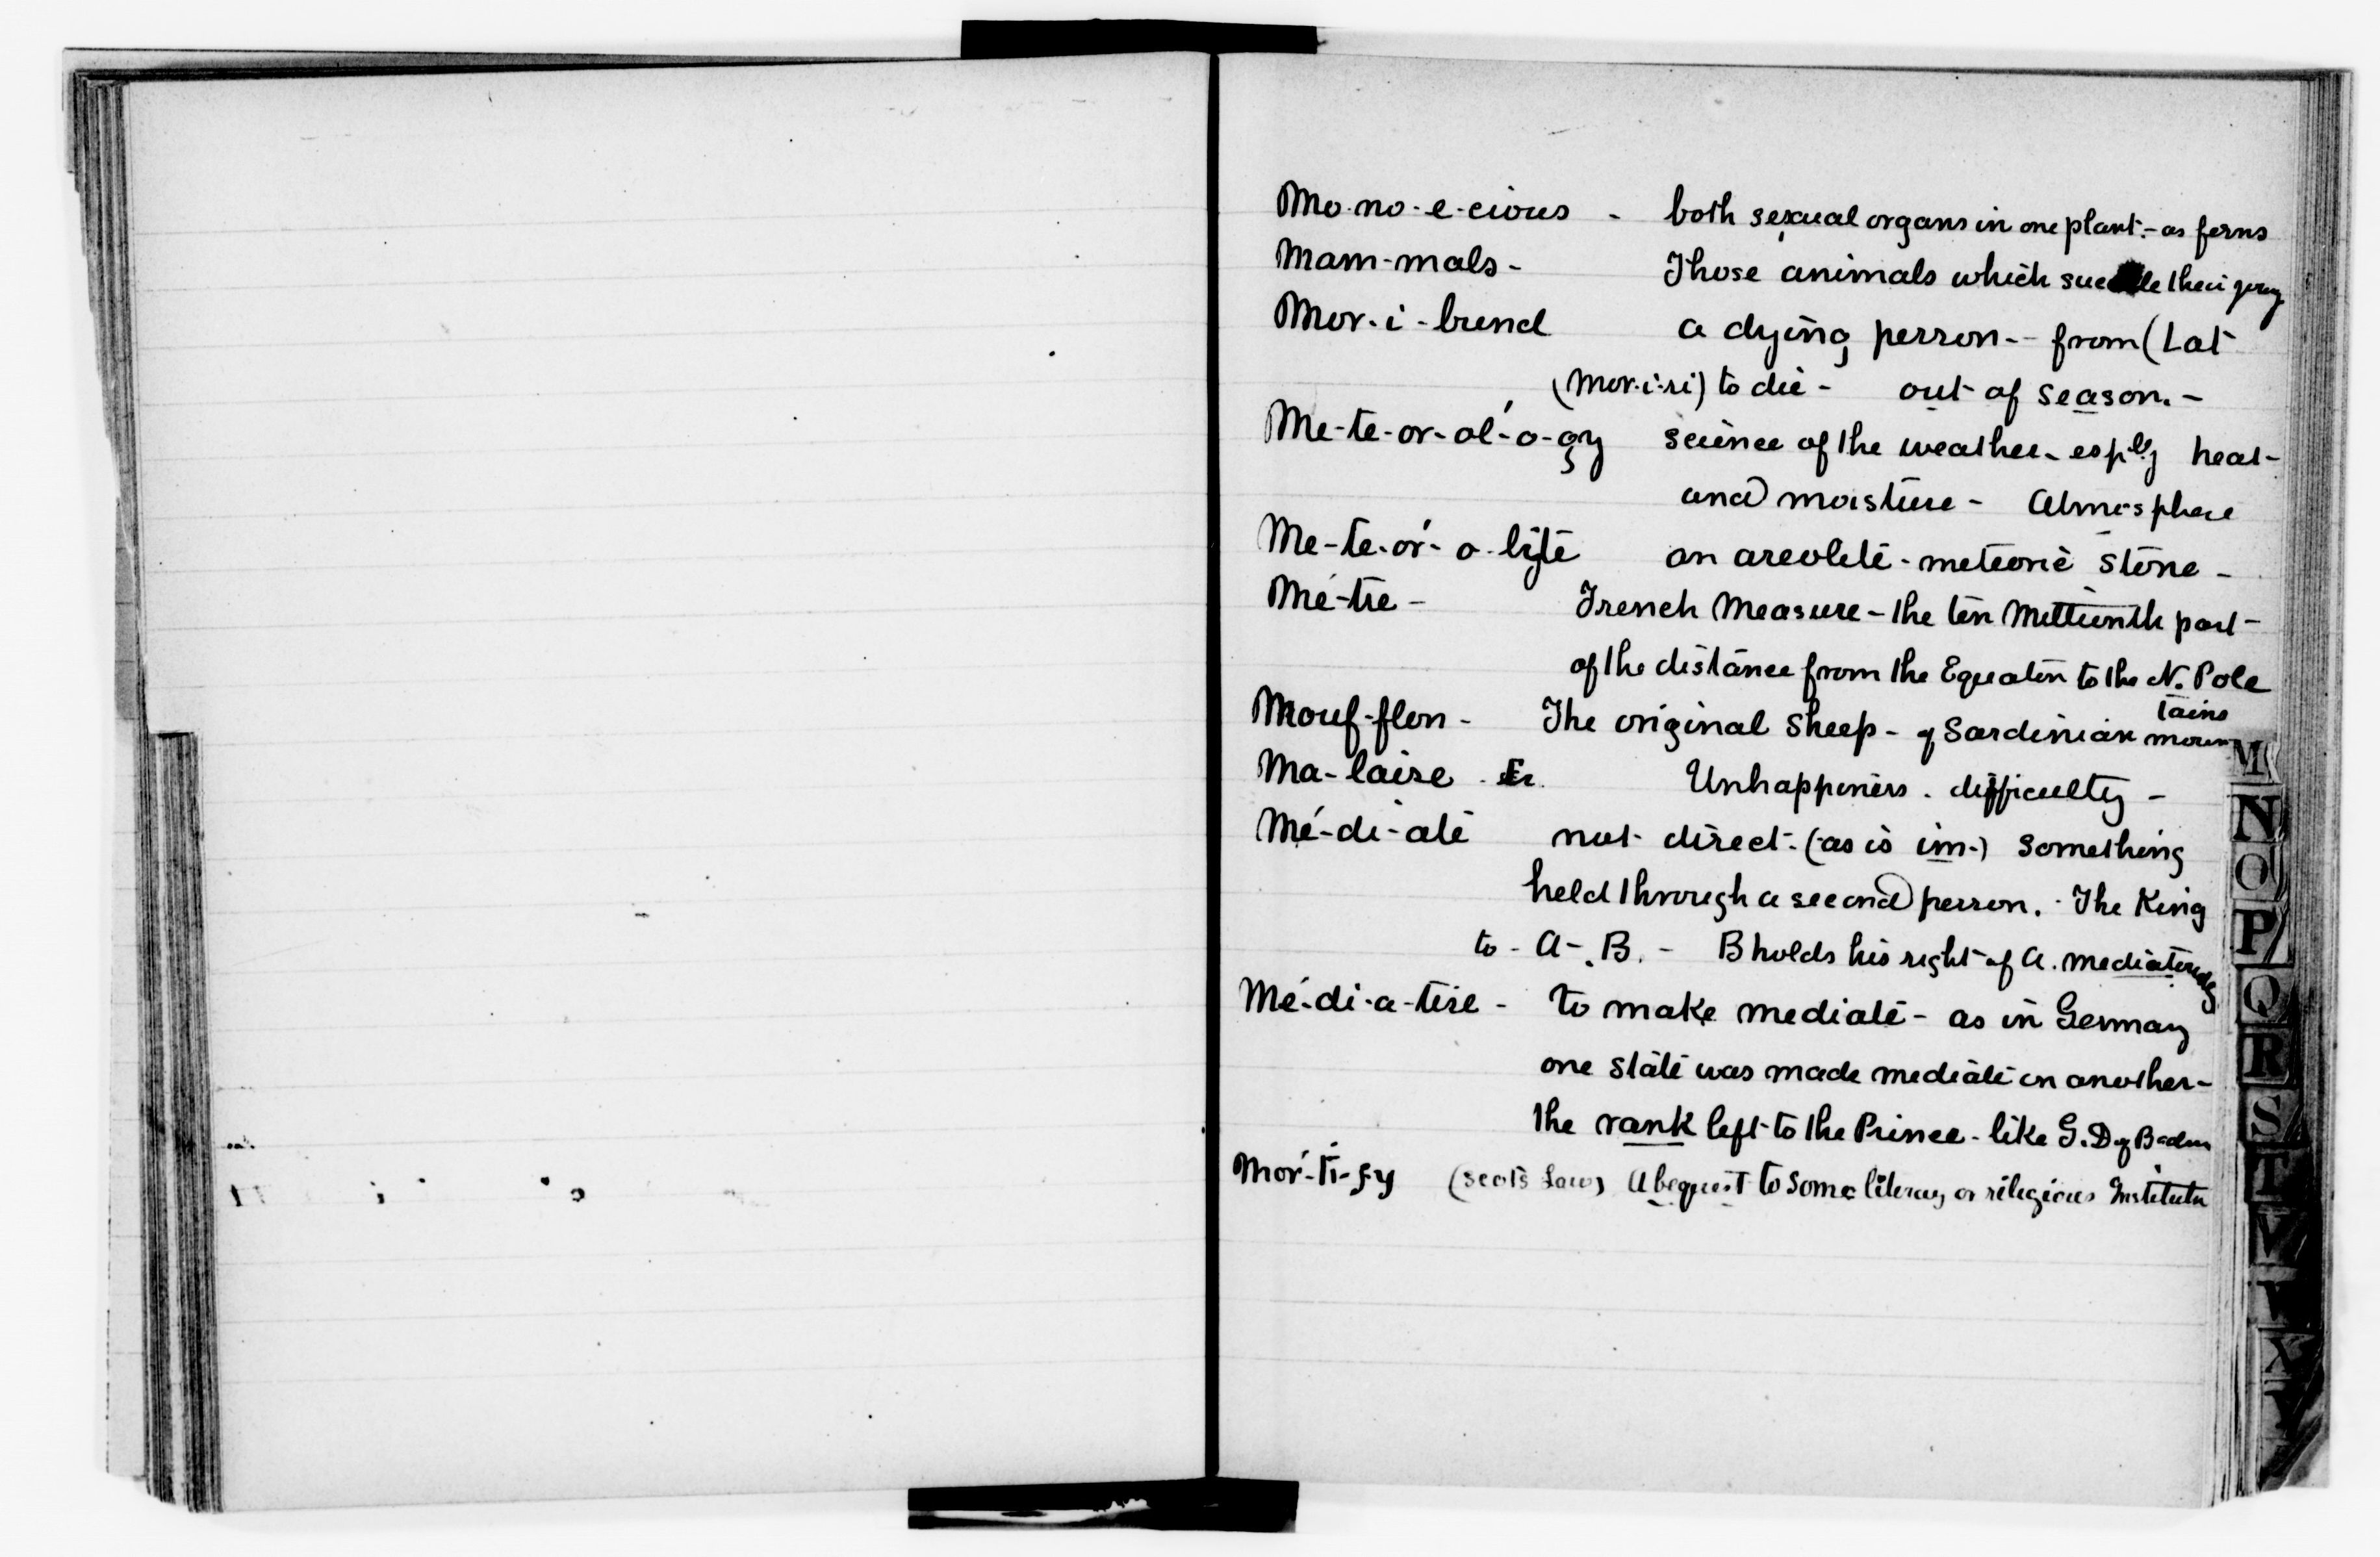 Mo-no-e-cious - both sexual organs in one plant - as ferns
Mam-mals - Those animals which suckle their young
Mor-i-bund a dying person - from (Lat
(mor-i-ri) to die - out of season. -
Me-te-or-ól-o-gy science of the weather - esply heat -
and moisture - Atmosphere
Me-te-ór-o-lite an areolite - meteoric stone -
Mé-tre - French Measure - the ten Millionth part -
of the distance from the Equator to the N. Pole
tains
Mouf-flon - The original sheep - of Sardinian moun
Ma-laise - Fr. Unhappiness - difficulty -
Mé-di-ate not direct - (as is im-) something
held through a second person. - The King
to - A - B. - B holds his right of A.
Mé-di-a-tise - to make mediate - as in Germany
one state was made mediate on another -
the rank left to the Prince - like G. D of Baden
Mór-ti-fy (Scots Law) A bequest to some literary or religious Institutn
M
N
O
P
Q
R
S
T
V
W
X
Y